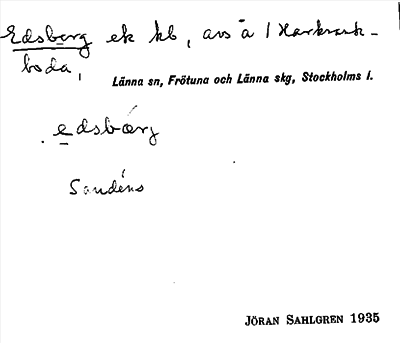 Edsberg ek kb, avs å 1 Harkrank-
boda,
Länna sn, Frötuna och Länna skg, Stockholms l.
edsbærg
Sandéns
JÖRAN SAHLGREN 1935